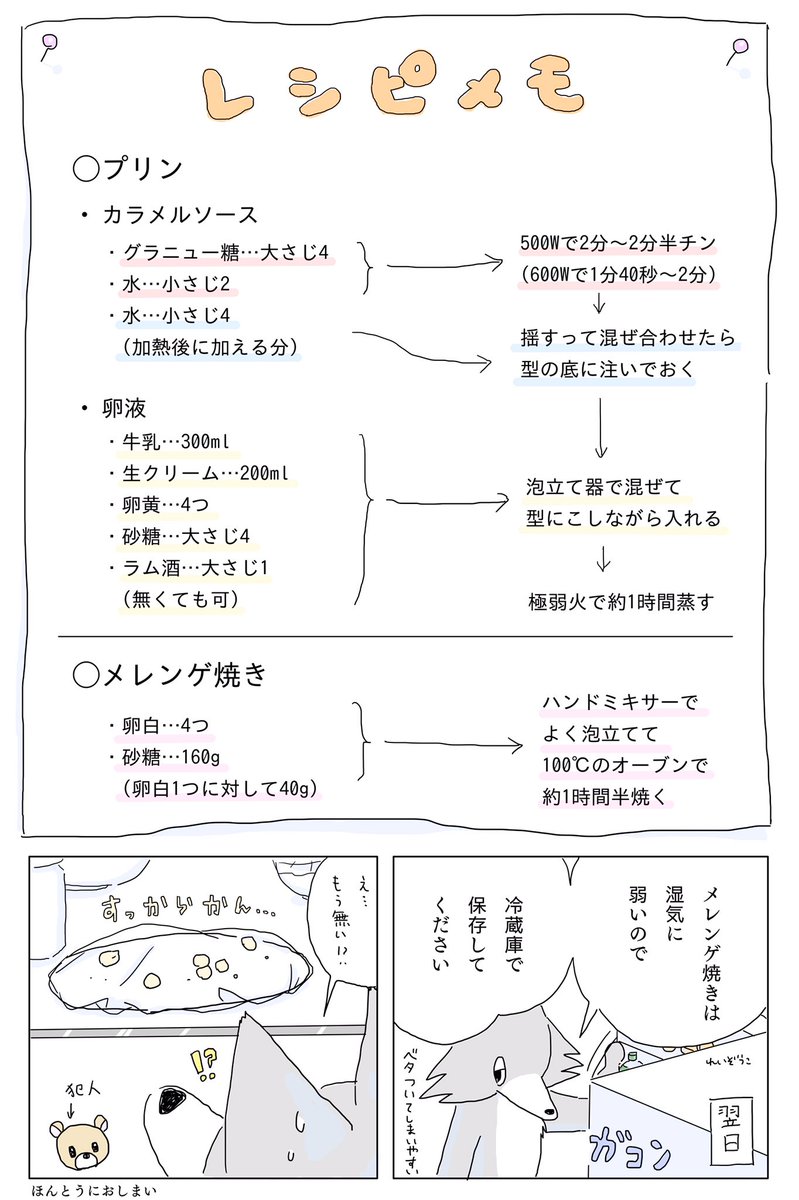 レシピメモ
〇プリン
・カラメルソース
・グラニュー糖…大さじ4
・水…小さじ2
・水…小さじ4
(加熱後に加える分)
500Wで2分〜2分半チン
(600Wで1分40秒〜2分)
揺すって混ぜ合わせたら
型の底に注いでおく
・卵液
・牛乳…300ml
・生クリーム…200ml
・卵黄…4つ
・砂糖…大さじ4
・ラム酒…大さじ1
(無くても可)
泡立て器で混ぜて
型にこしながら入れる
極弱火で約1時間蒸す
〇メレンゲ焼き
・卵白…4つ
・砂糖…160g
(卵白1つに対して40g)
ハンドミキサーで
よく泡立てて
100℃のオーブンで
約1時間半焼く
メレンゲ焼きは
湿気に
弱いので
冷蔵庫で
保存して
ください
れいぞうこ
翌日
ガコン
ベタついてしまいやすい
え…
もう無い!?
すっからかん…
!?
犯人
ほんとうにおしまい